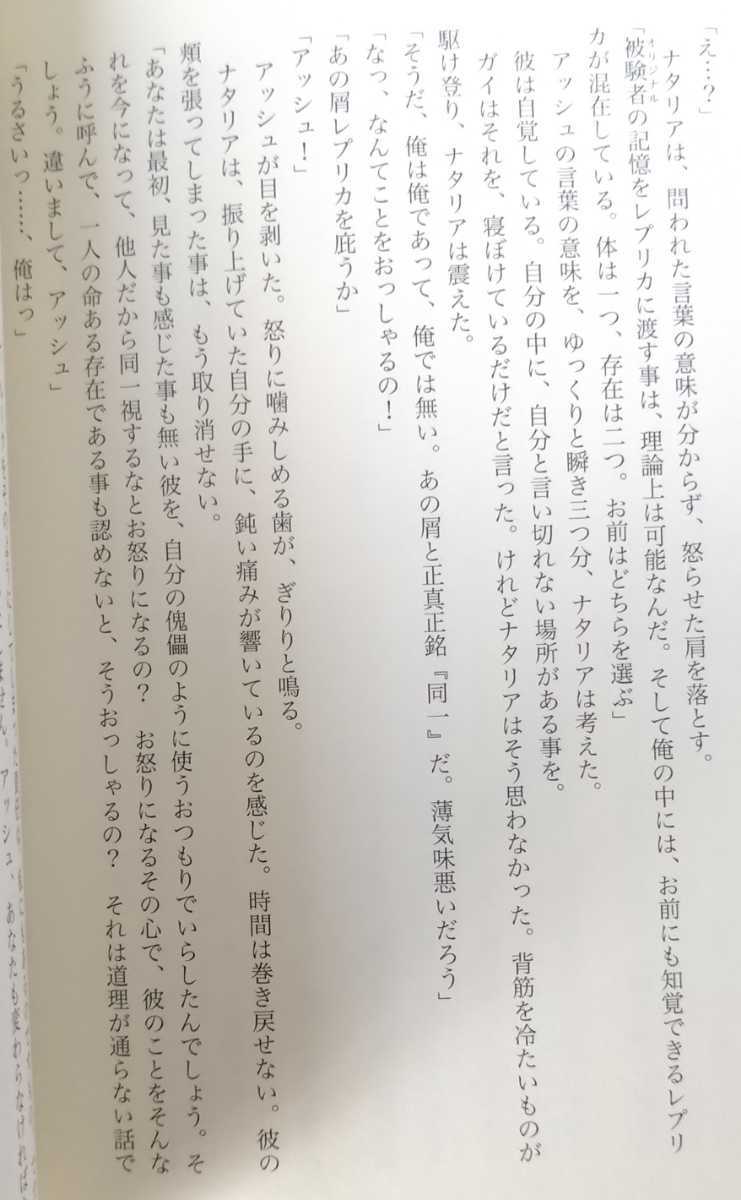 「え…？」
ナタリアは、問われた言葉の意味が分からず、怒らせた肩を落とす。
オリジナル
「被験者の記憶をレプリカに渡す事は、理論上は可能なんだ。そして俺の中には、お前にも知覚できるレプリ
カが混在している。体は一つ、存在は二つ。お前はどちらを選ぶ」
アッシュの言葉の意味を、ゆっくりと瞬き三つ分、ナタリアは考えた。
彼は自覚している。自分の中に、自分と言い切れない場所がある事を。
ガイはそれを、寝ぼけているだけだと言った。けれどナタリアはそう思わなかった。背筋を冷たいものが
駆け登り、ナタリアは震えた。
「そうだ、俺は俺であって、俺では無い。あの屑と正真正銘『同一』だ。薄気味悪いだろう」
「なっ、なんてことをおっしゃるの！」
「あの屑レプリカを庇うか」
「アッシュ！」
アッシュが目を剥いた。怒りに噛みしめる歯が、ぎりりと鳴る。
ナタリアは、振り上げていた自分の手に、鈍い痛みが響いているのを感じた。時間は巻き戻せない。彼の
頬を張ってしまった事は、もう取り消せない。
「あなたは最初、見た事も感じた事も無い彼を、自分の傀儡のように使うおつもりでいらしたんでしょう。そ
れを今になって、他人だから同一視するなとお怒りになるの？　お怒りになるその心で、彼のことをそんな
ふうに呼んで、一人の命ある存在である事も認めないと、そうおっしゃるの？　それは道理が通らない話で
しょう。違いまして、アッシュ」
「うるさいっ……、俺はっ」
ません。アッシュ、あなたも変わらなければ